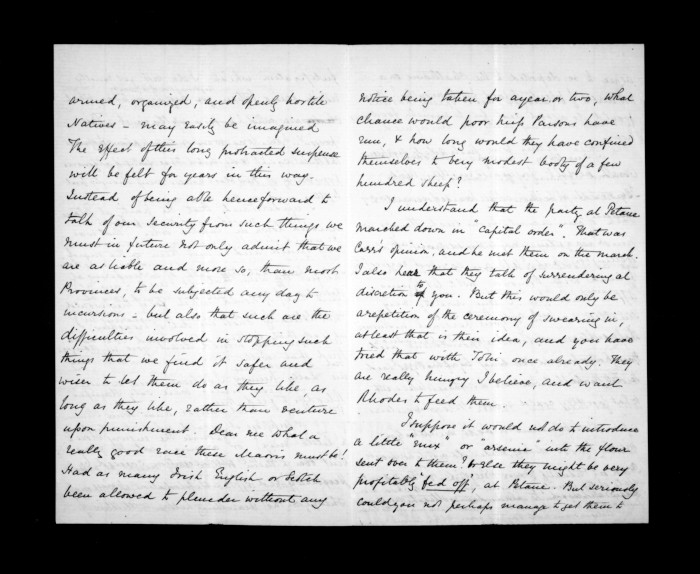 armed, organized, and openly hostile
Natives – may easily be imagined
The effect of this long protracted suspense
will be felt for years in this way.
Instead of being able henceforward to
talk of our security from such things we
must in future not only admit that we
are as liable and more so, than most
Provinces, to be subjected any day to
incursions – but also that such are the
difficulties involved in stopping such
things that we find it safer and
wiser to let them do as they like, as
long as they like, rather than venture
upon punishment. Dear me what a
really good race these Maoris must be!
Had as many Irish English or Scotch
been allowed to plunder without any
notice being taken for a year or two, what
chance would poor Miss Parsons have
run, & how long would they have confined
themselves to very modest booty of a few
hundred sheep?
I understand that the party at Petane
marched down in "capital order". That was
Carr's opinion, and he met them on the march.
I also hear that they talk of surrendering at
discretion to you. But this would only be
a repetition of the ceremony of swearing in,
at least that is their idea, and you have
tried that with Tohi once already. They
are really hungry I believe, and want
Rhodes to feed them.
I suppose it would not do to introduce
a little "nux" or "arsenic" into the flour
sent over to them? or else they might be very
profitably fed off, at Petane. But seriously
could you not perhaps manage to get them to